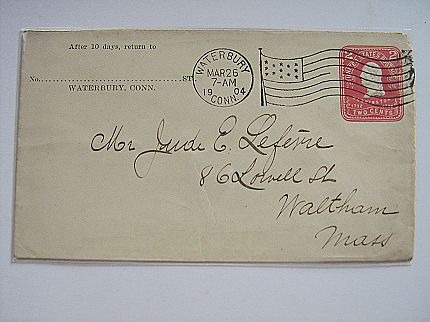 After 10 days, return to
No. ST
WATERBURY, CONN.
WATERBURY
MAR 26
7-AM
1904
CONN.
2 2
TWO CENTS
Mr Jude E. Lefevre
86 Lowell St
Waltham
Mass